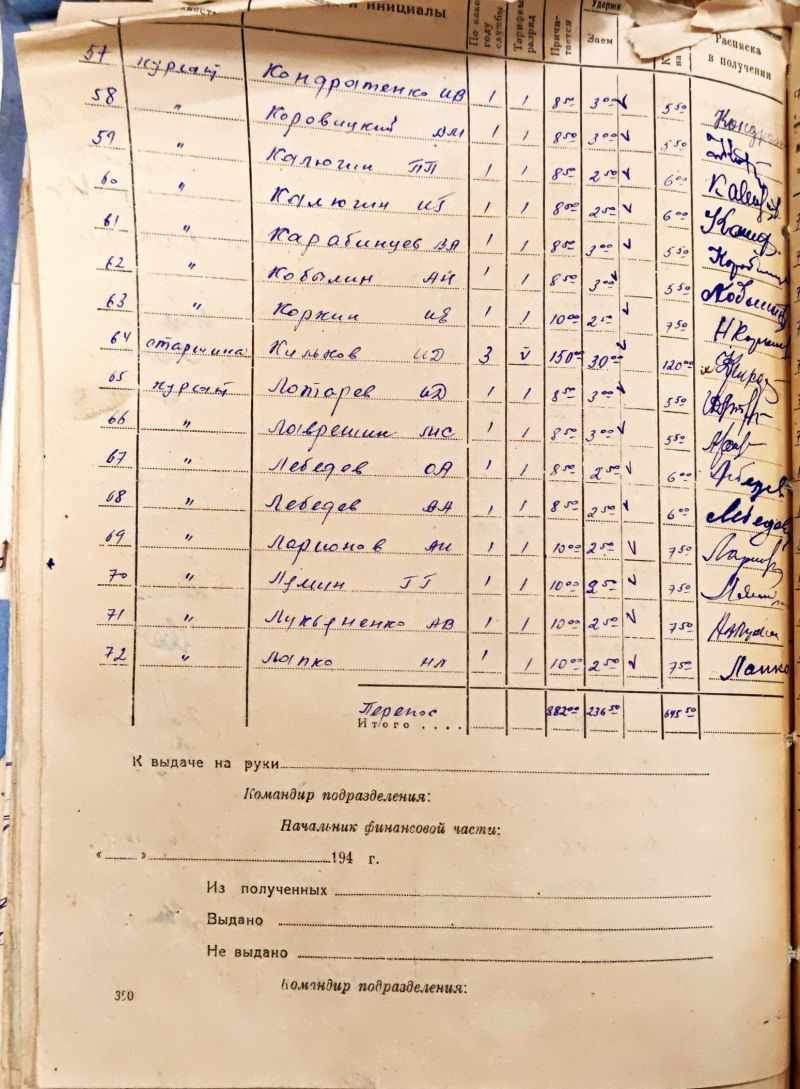 и инициалы По како году службы Тарифны разряд Причи- тается Удержи Заем на Расписка в получении
57 курсант Кондратенко ИВ 1 1 8 50 3 00 5 50 Кондра
58 " Коровицкий ВМ 1 1 8 50 3 00 5 50
59 " Калюгин ПП 1 1 8 50 2 50 6 00
60 " Калюгин ИГ 1 1 8 50 2 50 6 00
61 " Карабинцев ВА 1 1 8 50 3 00 5 50
62 " Кобылин АН 1 1 8 50 3 00 5 50
63 " Коржин ИЕ 1 1 10 00 2 50 7 50
64 старшина ИД 3 V 150 00 30 00 120 00
65 курсант Лотарев ИД 1 1 8 50 3 00 5 50
66 " Лаврешин МС 1 1 8 50 3 00 5 50
67 " Лебедев ОА 1 1 8 50 2 50 6 00
68 " Лебедев АА 1 1 8 50 2 50 6 00 Лебедев
69 " Ларионов АИ 1 1 10 00 2 50 7 50
70 " Лямин ГГ 1 1 10 00 2 50 7 50
71 " Лукьяненко АВ 1 1 10 00 2 50 7 50
72 " Лапко НЛ 1 1 10 00 2 50 7 50 Лапко
Перенос 882 00 236 50 645 50
Итого ....
К выдаче на руки
Командир подразделения:
Начальник финансовой части:
« » 194 г.
Из полученных
Выдано
Не выдано
Командир подразделения:
350